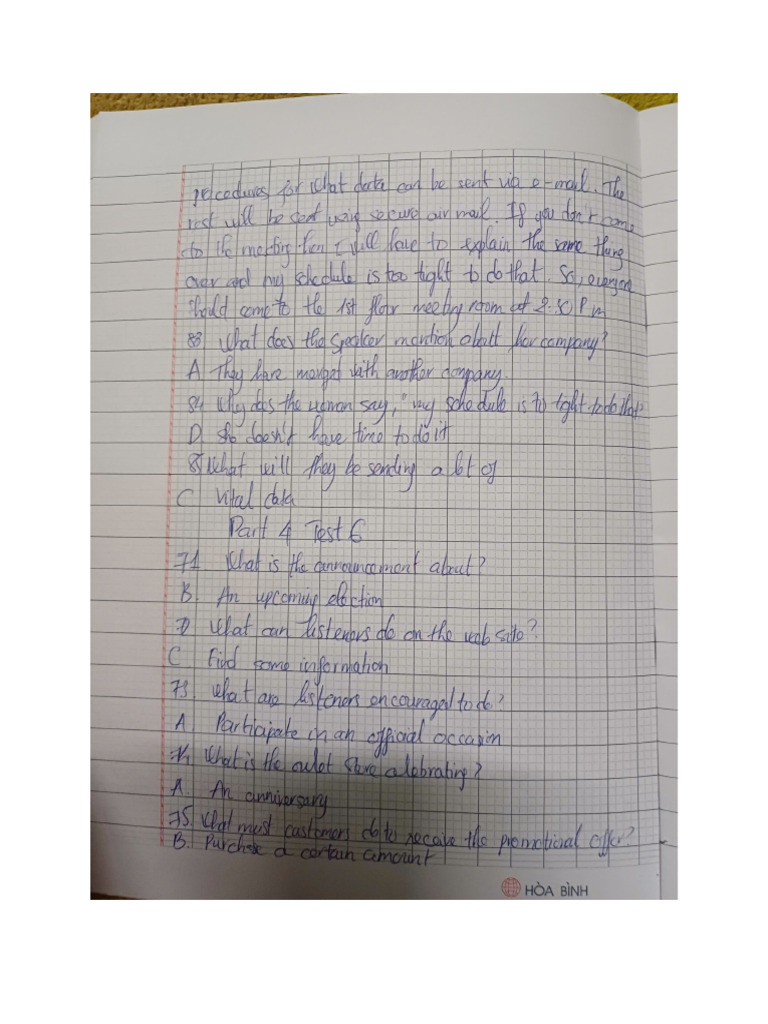 procedures for what data can be sent via e-mail. The
rest will be sent using secure our mail. If you don't come
to the meeting then I will have to explain the same thing
over and my schedule is too tight to do that. So, everyone
should come to the 1st floor meeting room at 2:30 P m
83 What does the speaker mention about her company?
A They have merged with another company.
84 Why does the woman say, "my schedule is to tight to do that?
D. She doesn't have time to do it
85 What will they be sending a lot of
C Vital data
Part 4 Test 6
71 What is the announcement about?
B. An upcoming election
72 What can listeners do on the web site?
C. Find some information
73. What are listeners encouraged to do?
A. Participate in an official occasion
74 What is the oulet store celebrating?
A. An anniversary
75. What must customers do to receive the promotional offer?
B. Purchase a certain amount
HÒA BÌNH